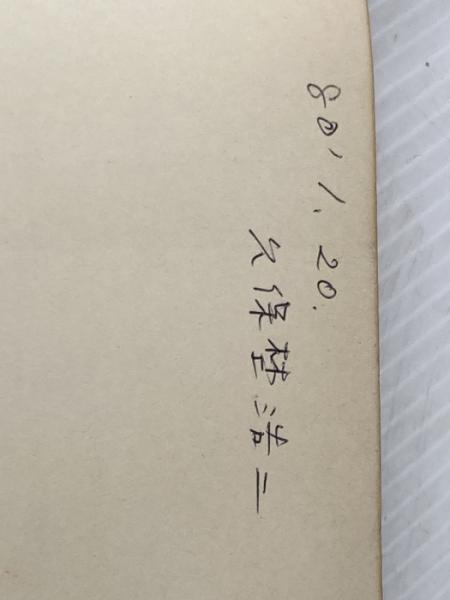 80' 1. 20.
久保埜浩二